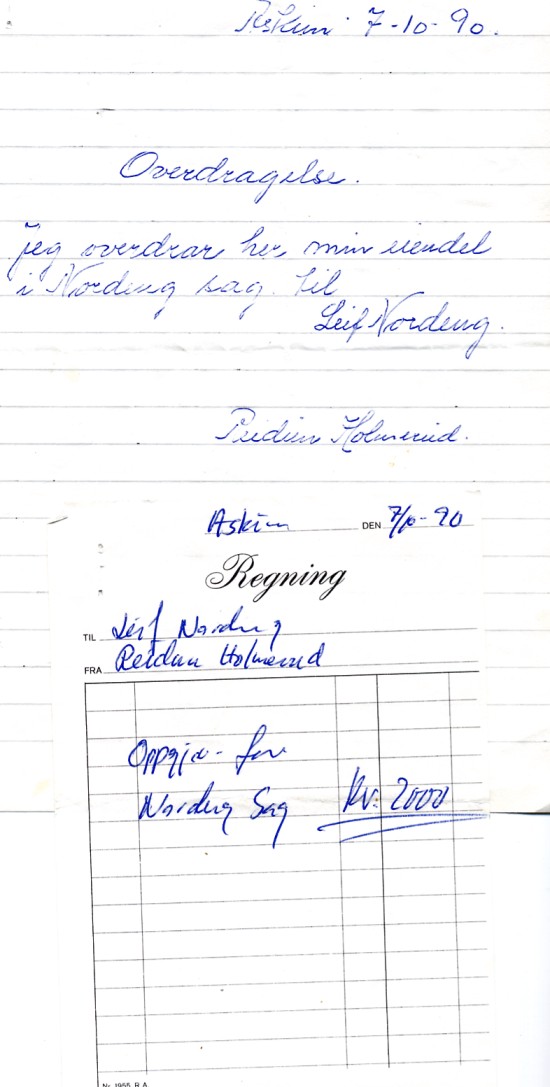 Askim 7-10-90.
Overdragelse.
jeg overdrar her min eiendel
i Nordeng sag. til
Leif Nordeng.
Reidun Holmerud.
Askim DEN 7/10-90
Regning
TIL Leif Nordeng
FRA Reidun Holmerud
Oppgjør for
Nordeng Sag Kr: 2000
Nr. 1955 R.A.